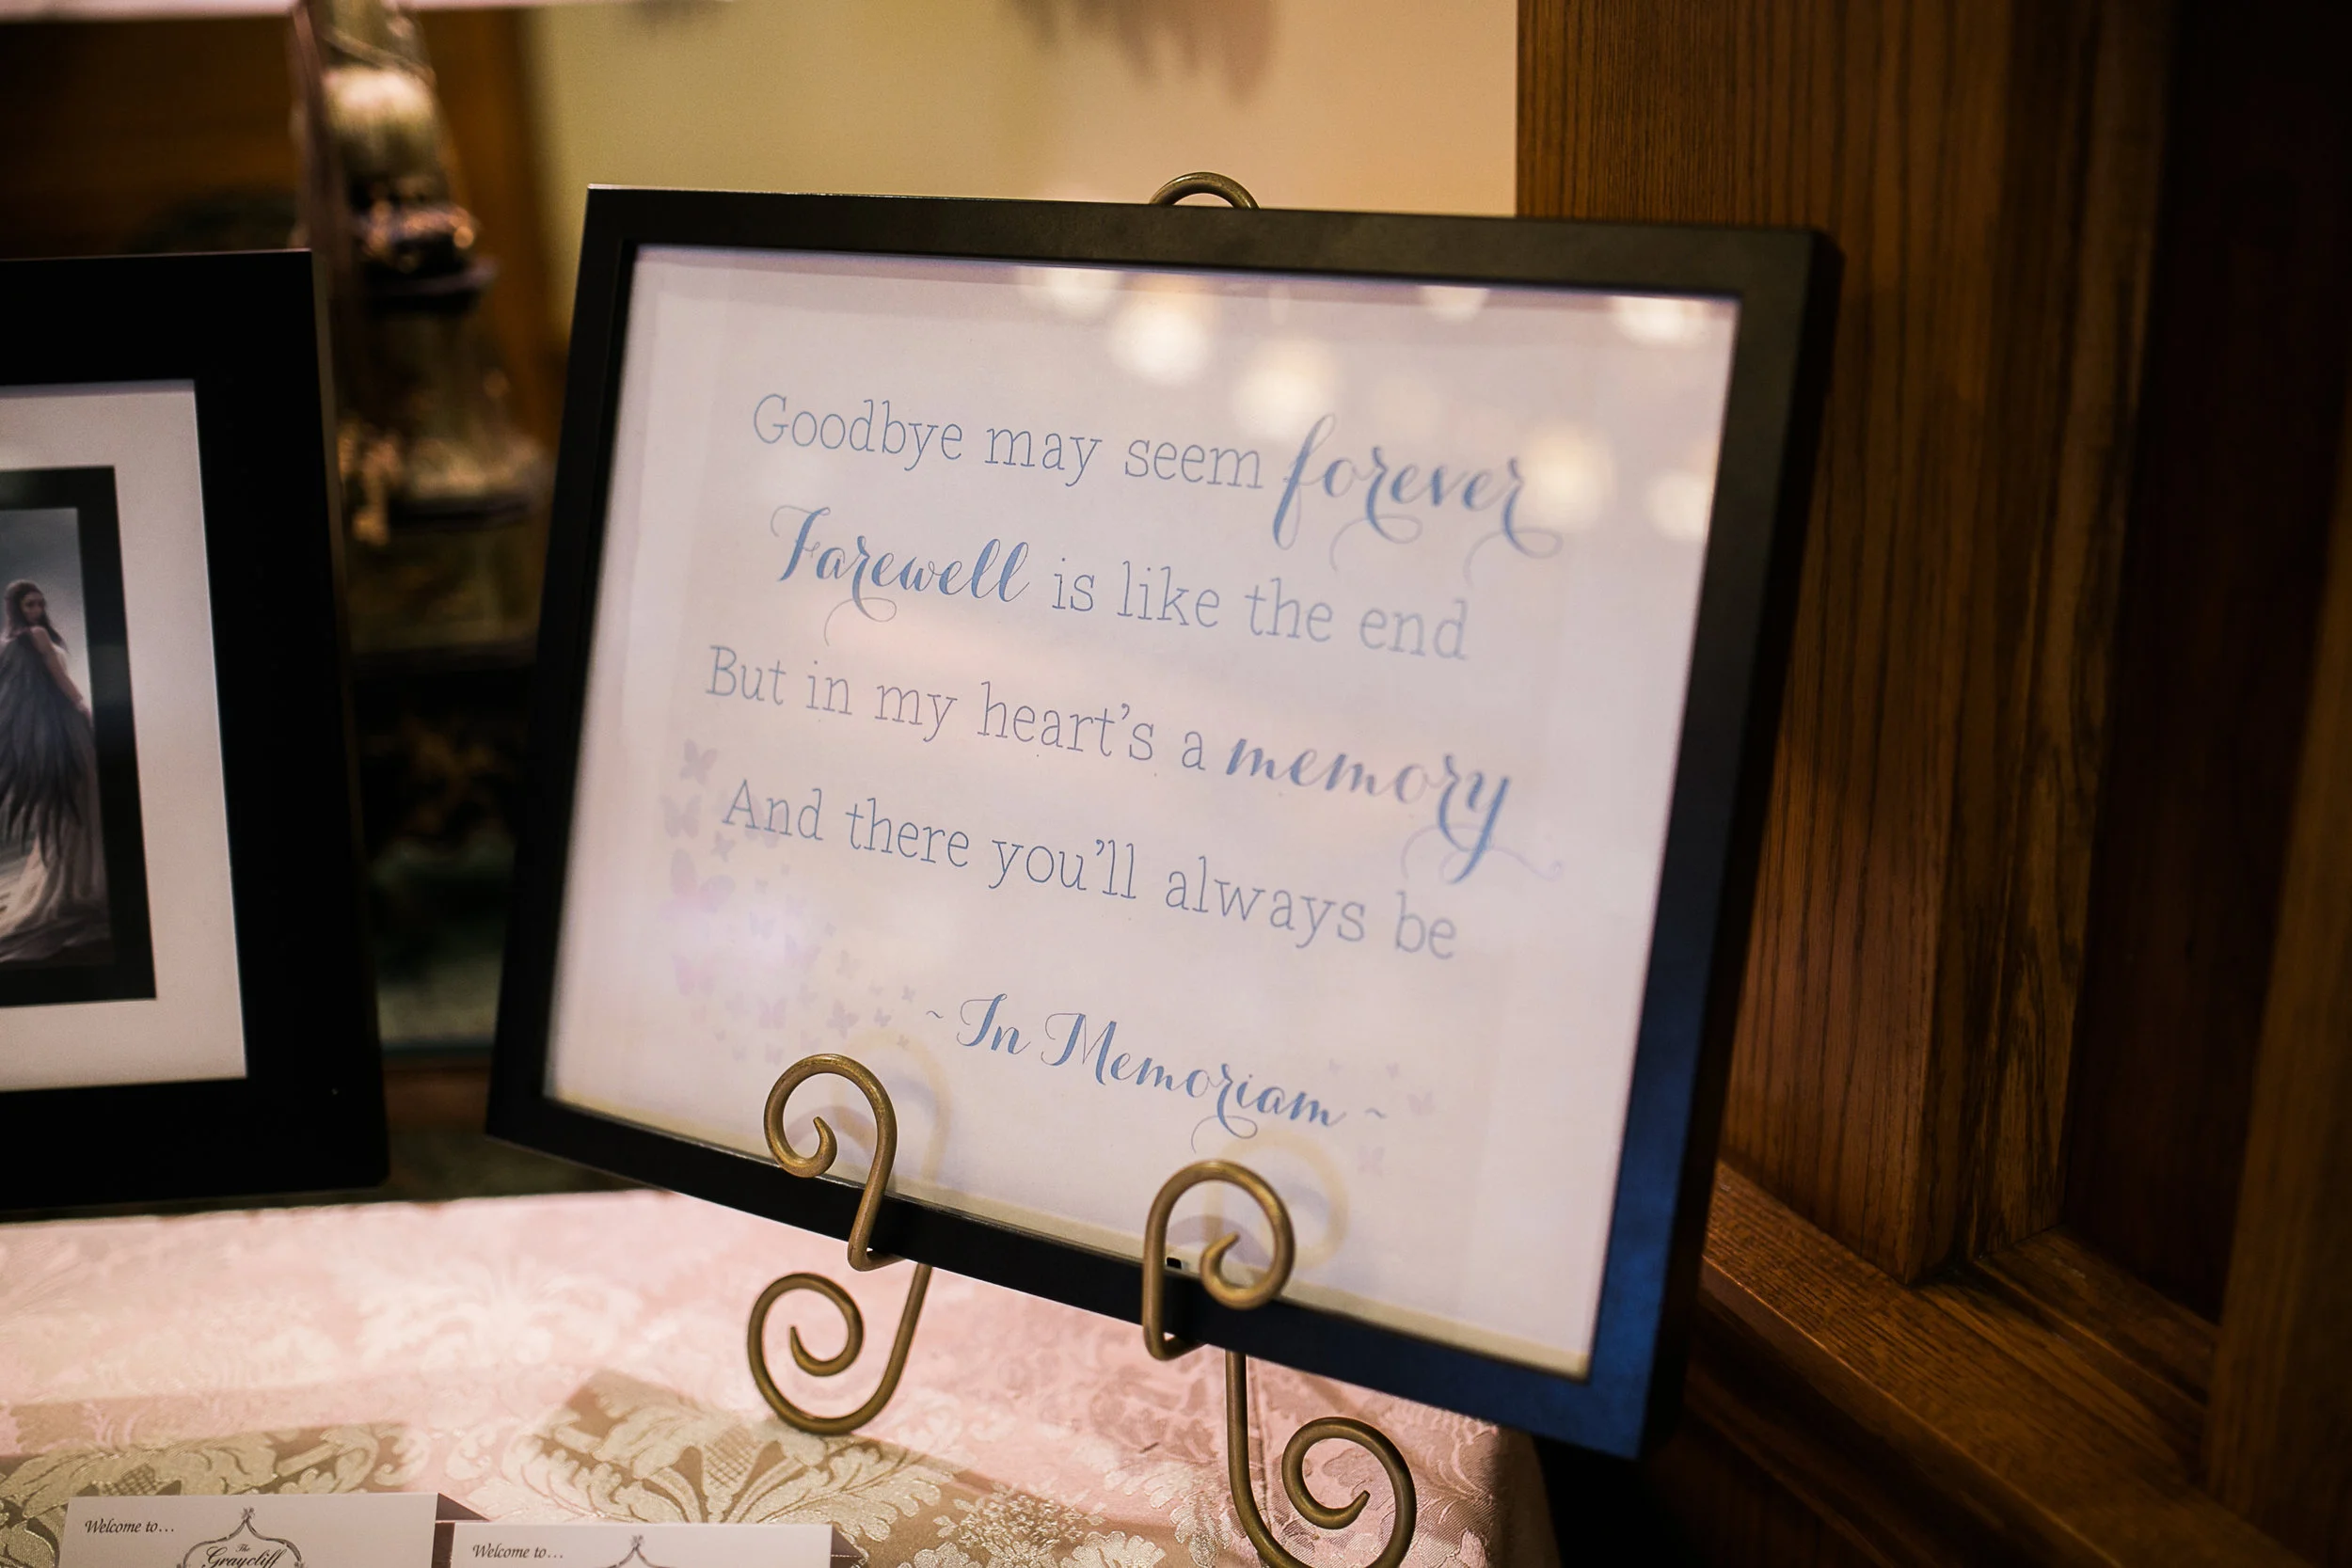 Goodbye may seem forever
Farewell is like the end
But in my heart's a memory
And there you'll always be
~ In Memoriam ~
Welcome to...
The
Graycliff
Welcome to...